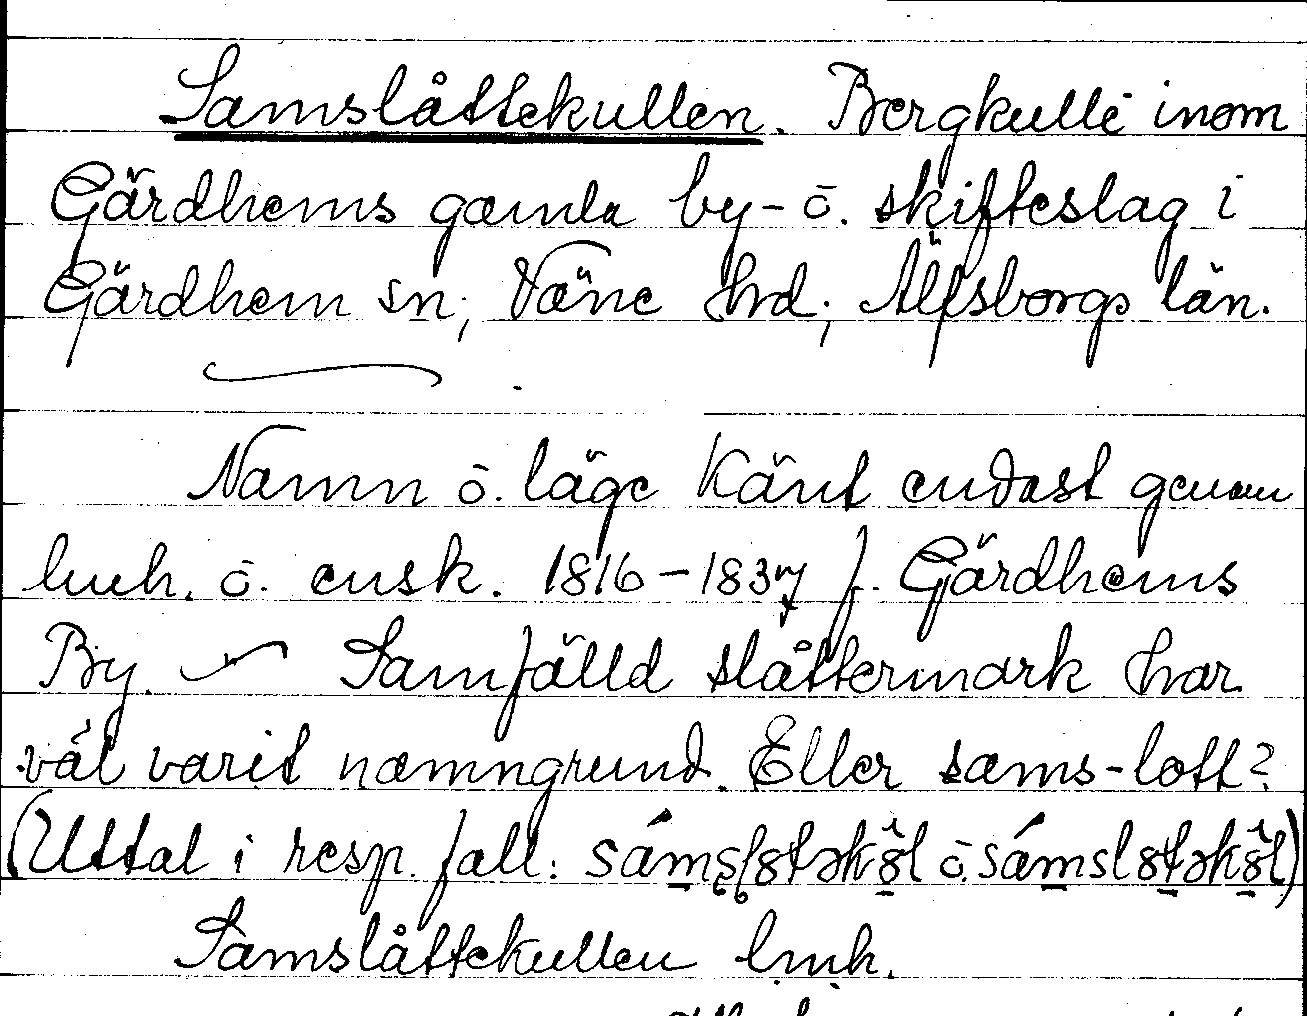 Samslåttekullen. Bergkulle inom
Gärdhems gamla by- o. skifteslag i
Gärdhem sn, Väne hd, Älfsborgs län.
Namn o. läge känt endast genom
lmh. o. ensk. 1816-1837 f. Gärdhems
By. ~ Samfälld slåttermark har
väl varit namngrund. Eller sams-lott?
(Uttal i resp. fall: o.
Samslåttekullen lmh.